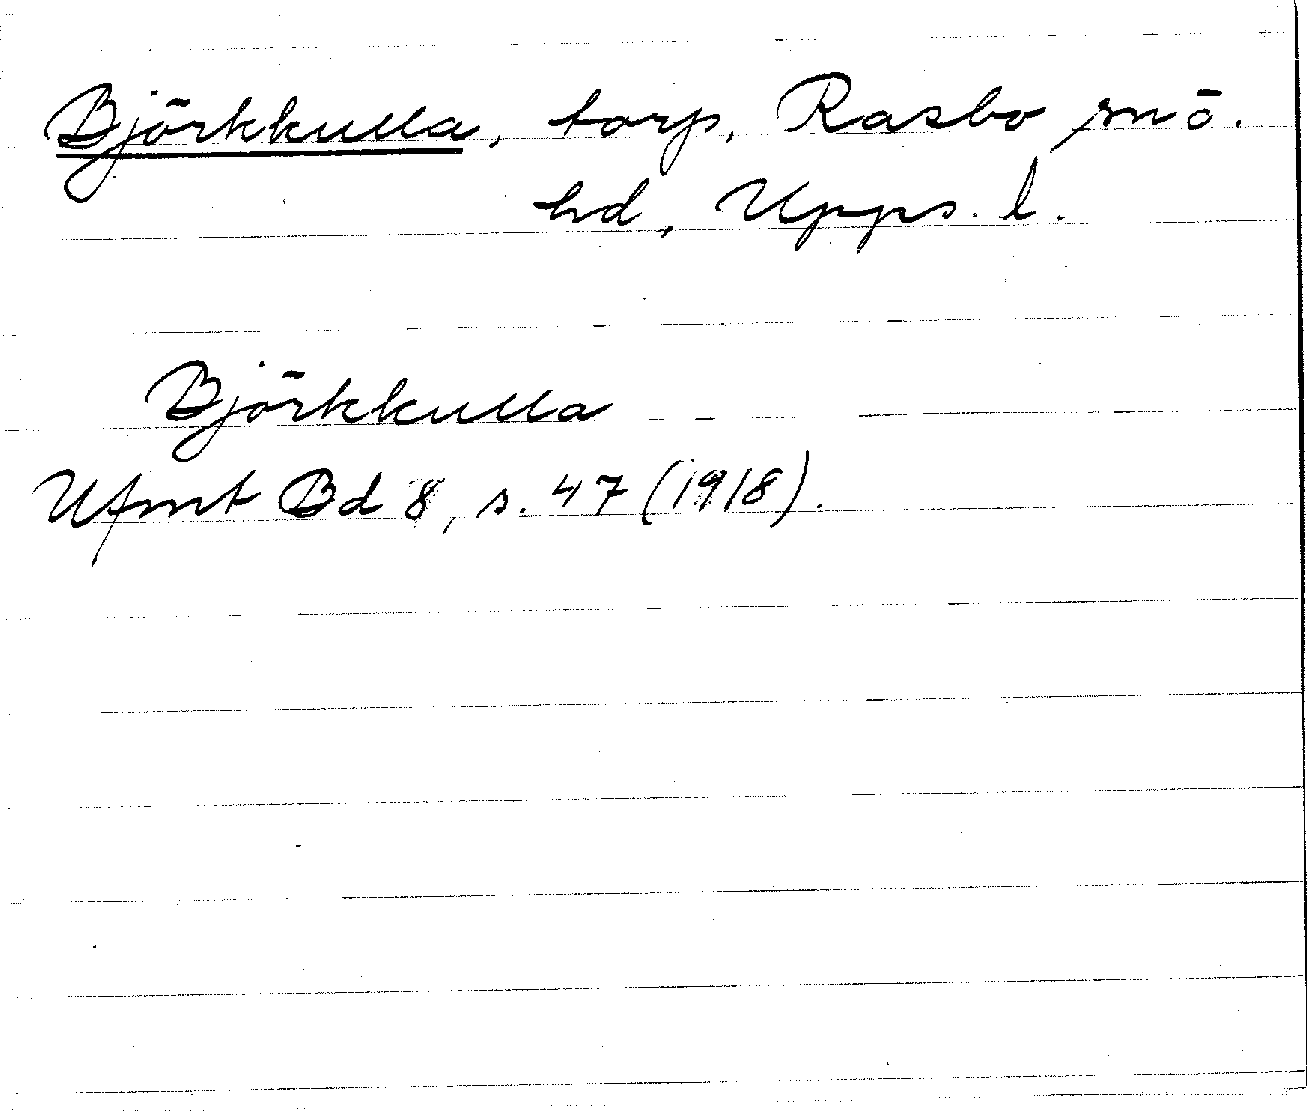 Björkkulla, torp, Rasbo snö.
hd, Upps. l.
Björkkulla
Ufmt Bd 8, s. 47 (1918).